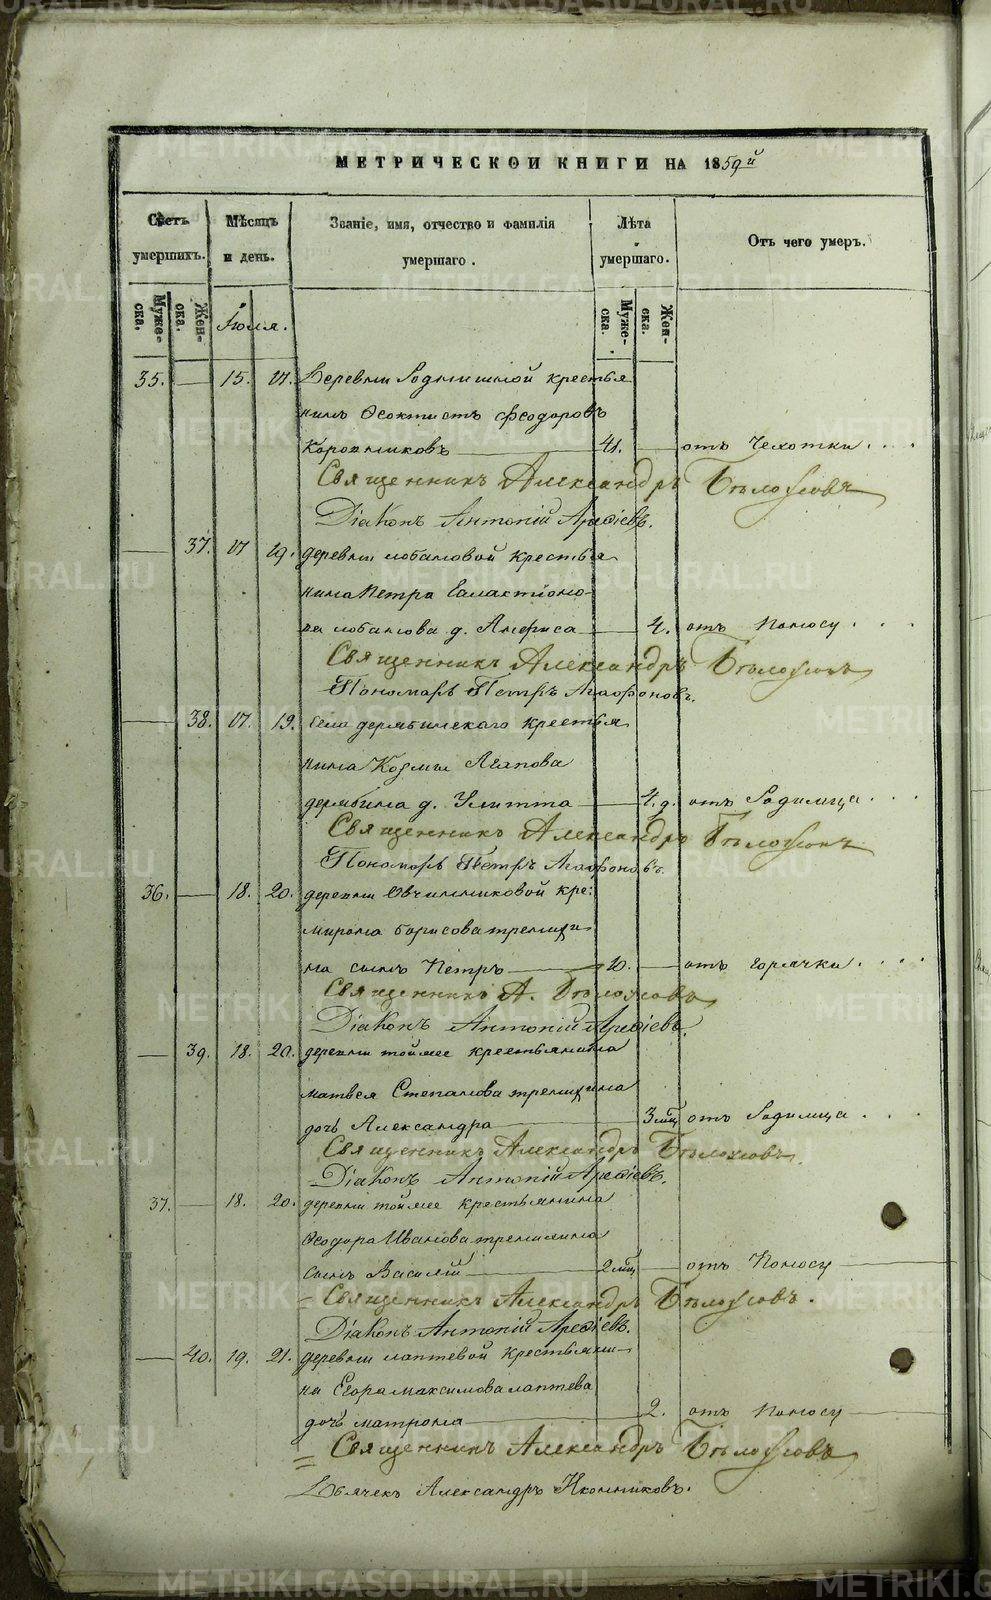 МЕТРИЧЕСКОЙ КНИГИ НА 1859й
Счетъ умершихъ.
Мѣсяцъ и день.
Званіе, имя, отчество и фамилія умершаго.
Лѣта умершаго.
Отъ чего умеръ.
Мужеска. Женска. Іюля. Мужеска. Женска.
35. — 15. 17. Деревни крестья
нинъ Ѳеоктистъ Феодоровъ
Коровниковъ — 41. — отъ Чехотки . . .
Священникъ Александръ Бѣлоусовъ
Діаконъ Антоній Арефіевъ.
— 37. 17 19. деревни лобановой крестья
нина Петра Галактіоно-
ва лобанова д. Анфиса — 4. отъ Поносу . . .
Священникъ Александръ Бѣлоусовъ
Пономарь Петръ Агафоновъ.
— 38. 17. 19. села дерябинскаго крестья
нина Козмы Агапова
дерябина д. Улитта — 4. д. отъ Родимца . . .
Священникъ Александръ Бѣлоусовъ
Пономарь Петръ Агафоновъ.
36. — 18. 20. деревни Овчинниковой кре:
мирона борисова тренихи
на сынъ Петръ — 10. — отъ горячки . . . .
Священникъ А. Бѣлоусовъ
Діаконъ Антоній Арефіевъ.
— 39. 18. 20. деревни тоймее крестьянина
матвея Степанова тренихина
дочь Александра — 3 мѣц отъ Родимца . . .
Священникъ Александръ Бѣлоусовъ.
Діаконъ Антоній Арефіевъ.
37. — 18. 20. деревни тоймее крестьянина
Ѳеодора Иванова тренихина
сынъ Василій — 2 мѣц — отъ Поносу —
Священникъ Александръ Бѣлоусовъ.
Діаконъ Антоній Арефіевъ.
— 40. 19. 21. деревни лаптевой крестьяни-
на Егора максимова лаптева
дочь матрона — 2. отъ Поносу —
Священникъ Александръ Бѣлоусовъ
Дьячекъ Александръ Иконниковъ.
METRIKI.GASO-URAL.RU